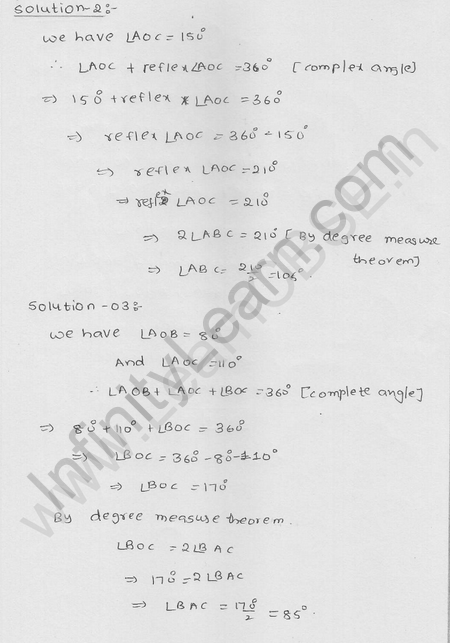 Solution-2:-
we have ∠AOC = 150°
∴ ∠AOC + reflex∠AOC = 360° [complex angle]
⇒ 150° + reflex ∠AOC = 360°
⇒ reflex ∠AOC = 360° - 150°
⇒ reflex ∠AOC = 210°
⇒ reflex ∠AOC = 210°
⇒ 2∠ABC = 210° [By degree measure theorem]
⇒ ∠ABC = 210°/2 = 105°.
Solution -03:-
we have ∠AOB = 80°
And ∠AOC = 110°
∴ ∠AOB + ∠AOC + ∠BOC = 360° [complete angle]
⇒ 80° + 110° + ∠BOC = 360°
⇒ ∠BOC = 360° - 80° - 110°
⇒ ∠BOC = 170°
By degree measure theorem.
∠BOC = 2∠BAC
⇒ 170° = 2∠BAC
⇒ ∠BAC = 170°/2 = 85°.
InfinityLearn.com